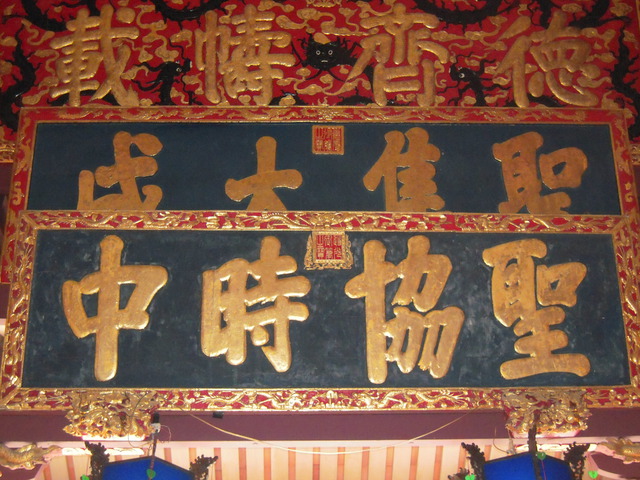 德齊幬載
聖集大成
聖協時中